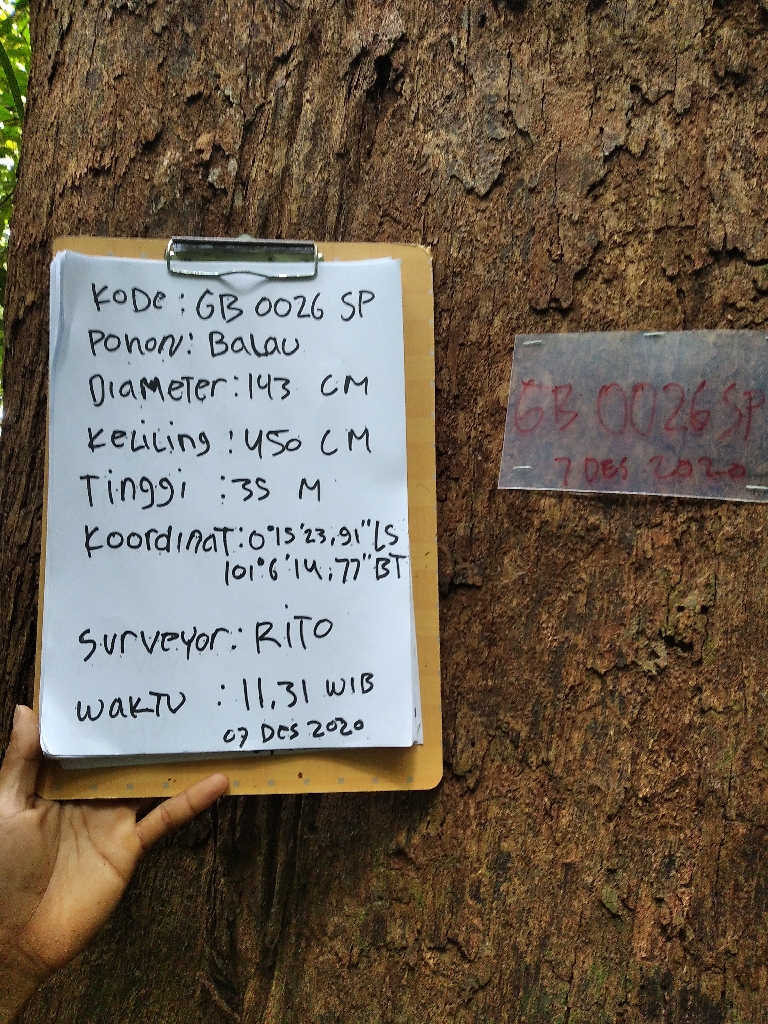 KODE : GB 0026 SP
POHON : BALAU
DIAMETER : 143 CM
KELILING : 450 CM
TINGGI : 35 M
KOORDINAT : 0°15'23,91" LS
101°6'14,77" BT
SURVEYOR : RITO
WAKTU : 11.31 WIB
07 DES 2020
GB 0026 SP
7 DES 2020